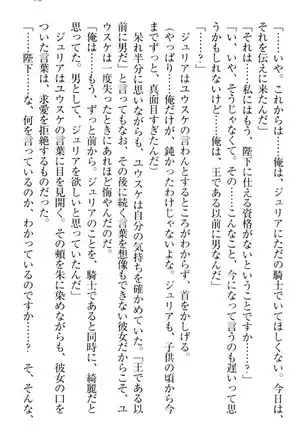 「……いや。これからは……俺は、ジュリアにただの騎士でいてほしくない。今日は、
それを伝えに来たんだ」
「それは……私にはもう、陛下に仕える資格がないということですか……？」
「い、いや、そうじゃなくて。その……こんなこと、今になって言うのも遅いって思
うかもしれないけど……俺は、王である以前に男なんだ」
ジュリアはユウスケの言わんとするところがわからず、首をかしげる。
（やっぱり……俺だけが、鈍かったわけじゃないんだ。ジュリアも、子供の頃から今
までずっと、真面目すぎたんだ）
呆れ半分に思いながらも、ユウスケは自分の気持ちを確かめていた。「王である以
前に男だ」と言ってもなお、その後に続く言葉を想像もできない彼女だからこそ、ユ
ウスケは一度失ったときにあれほど悔やんだのだ。
「俺は……もう、ずっと前から。ジュリアのことを、騎士であると同時に、綺麗だと
思ってた。男として、ジュリアを欲しいと思っていたんだ」
ジュリアはユウスケの言葉に目を見開く。その頬を朱に染めながらも、彼女の口を
ついた言葉は、求愛を拒絶するものだった。
「……陛下……な、何を言っているのか、わかっているのですか……？　そ、そんな、